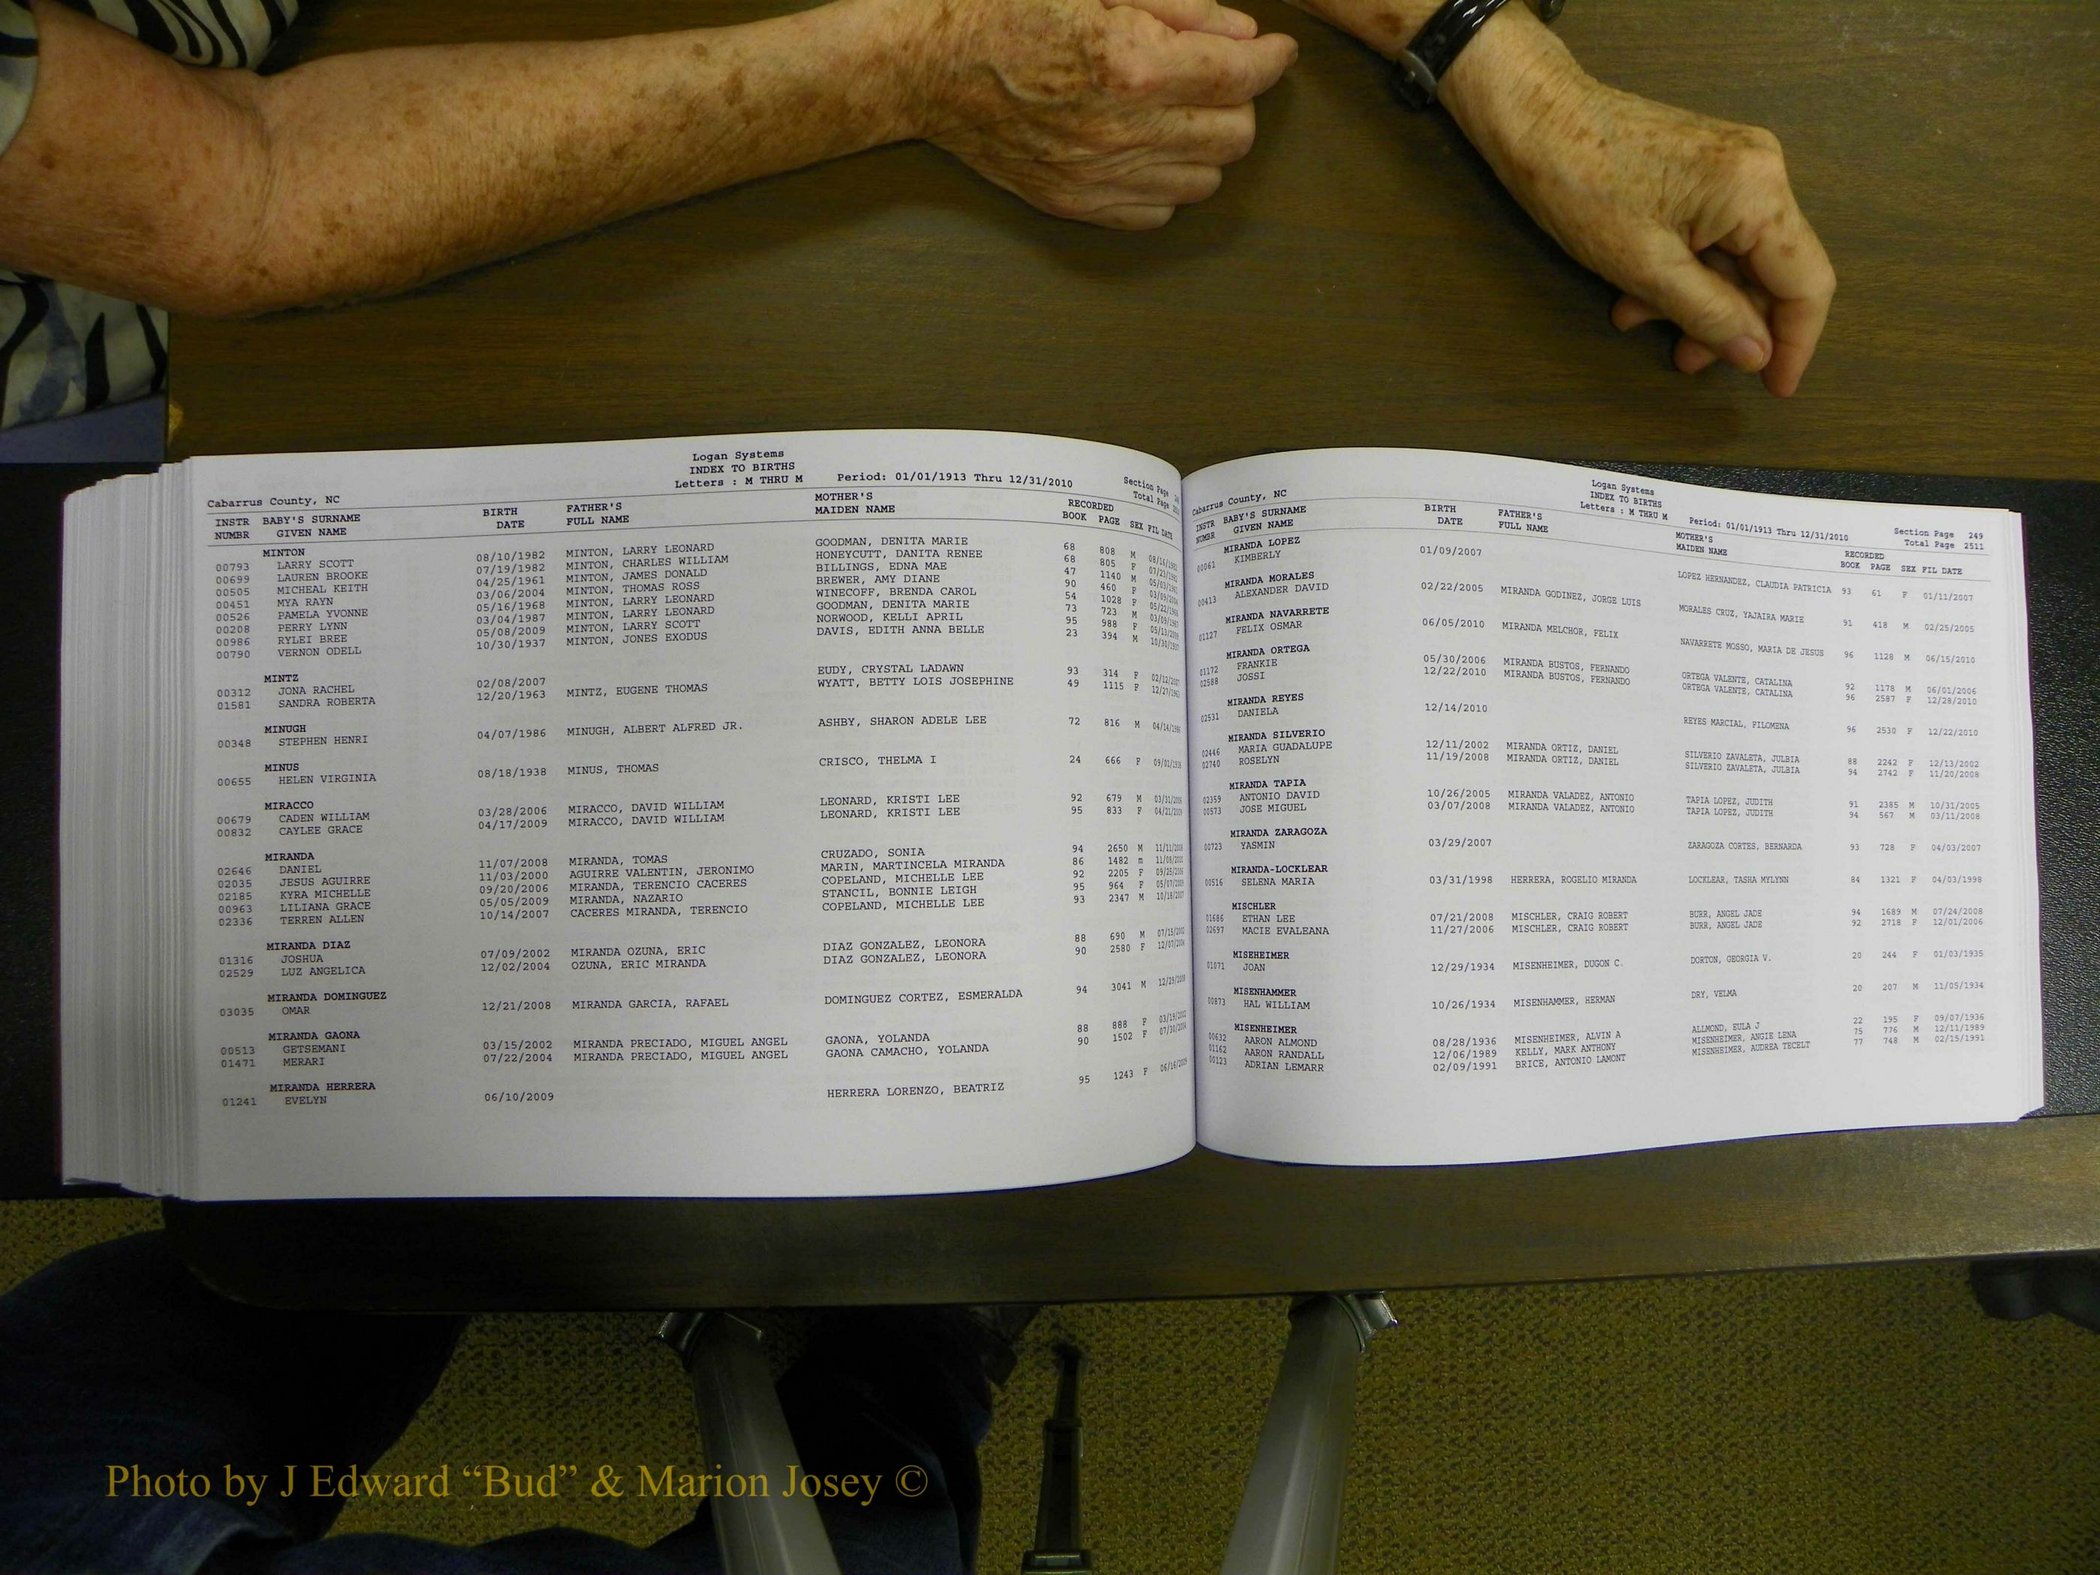 Logan Systems
INDEX TO BIRTHS
Letters : M THRU M Period: 01/01/1913 Thru 12/31/2010 Section Page
Cabarrus County, NC Total Page
INSTR BABY'S SURNAME BIRTH FATHER'S MOTHER'S RECORDED
NUMBR GIVEN NAME DATE FULL NAME MAIDEN NAME BOOK PAGE SEX FIL DATE
MINTON
00793 LARRY SCOTT 08/10/1982 MINTON, LARRY LEONARD GOODMAN, DENITA MARIE 68 808 M 09/16/1982
00699 LAUREN BROOKE 07/19/1982 MINTON, CHARLES WILLIAM HONEYCUTT, DANITA RENEE 68 805 F 07/23/1982
00505 MICHEAL KEITH 04/25/1961 MINTON, JAMES DONALD BILLINGS, EDNA MAE 47 1140 M 05/03/1961
00451 MYA RAYN 03/06/2004 MINTON, THOMAS ROSS BREWER, AMY DIANE 90 460 F 03/09/2004
00526 PAMELA YVONNE 05/16/1968 MINTON, LARRY LEONARD WINECOFF, BRENDA CAROL 54 1028 F 05/22/1968
00208 PERRY LYNN 03/04/1987 MINTON, LARRY LEONARD GOODMAN, DENITA MARIE 73 723 M 03/09/1987
00986 RYLEI BREE 05/08/2009 MINTON, LARRY SCOTT NORWOOD, KELLI APRIL 95 988 F 05/13/2009
00790 VERNON ODELL 10/30/1937 MINTON, JONES EXODUS DAVIS, EDITH ANNA BELLE 23 394 M 10/30/1937
MINTZ
00312 JONA RACHEL 02/08/2007 EUDY, CRYSTAL LADAWN 93 314 F 02/12/2007
01581 SANDRA ROBERTA 12/20/1963 MINTZ, EUGENE THOMAS WYATT, BETTY LOIS JOSEPHINE 49 1115 F 12/27/1963
MINUGH
00348 STEPHEN HENRI 04/07/1986 MINUGH, ALBERT ALFRED JR. ASHBY, SHARON ADELE LEE 72 816 M 04/14/1986
MINUS
00655 HELEN VIRGINIA 08/18/1938 MINUS, THOMAS CRISCO, THELMA I 24 666 F 09/01/1938
MIRACCO
00679 CADEN WILLIAM 03/28/2006 MIRACCO, DAVID WILLIAM LEONARD, KRISTI LEE 92 679 M 03/31/2006
00832 CAYLEE GRACE 04/17/2009 MIRACCO, DAVID WILLIAM LEONARD, KRISTI LEE 95 833 F 04/21/2009
MIRANDA
02646 DANIEL 11/07/2008 MIRANDA, TOMAS CRUZADO, SONIA 94 2650 M 11/11/2008
02035 JESUS AGUIRRE 11/03/2000 AGUIRRE VALENTIN, JERONIMO MARIN, MARTINCELA MIRANDA 86 1482 m 11/08/2000
02185 KYRA MICHELLE 09/20/2006 MIRANDA, TERENCIO CACERES COPELAND, MICHELLE LEE 92 2205 F 09/25/2006
00963 LILIANA GRACE 05/05/2009 MIRANDA, NAZARIO STANCIL, BONNIE LEIGH 95 964 F 05/07/2009
02336 TERREN ALLEN 10/14/2007 CACERES MIRANDA, TERENCIO COPELAND, MICHELLE LEE 93 2347 M 10/18/2007
MIRANDA DIAZ
01316 JOSHUA 07/09/2002 MIRANDA OZUNA, ERIC DIAZ GONZALEZ, LEONORA 88 690 M 07/15/2002
02529 LUZ ANGELICA 12/02/2004 OZUNA, ERIC MIRANDA DIAZ GONZALEZ, LEONORA 90 2580 F 12/07/2004
MIRANDA DOMINGUEZ
03035 OMAR 12/21/2008 MIRANDA GARCIA, RAFAEL DOMINGUEZ CORTEZ, ESMERALDA 94 3041 M 12/29/2008
MIRANDA GAONA
00513 GETSEMANI 03/15/2002 MIRANDA PRECIADO, MIGUEL ANGEL GAONA, YOLANDA 88 888 F 03/19/2002
01471 MERARI 07/22/2004 MIRANDA PRECIADO, MIGUEL ANGEL GAONA CAMACHO, YOLANDA 90 1502 F 07/30/2004
MIRANDA HERRERA
01241 EVELYN 06/10/2009 HERRERA LORENZO, BEATRIZ 95 1243 F 06/16/2009
Logan Systems
INDEX TO BIRTHS
Letters : M THRU M Period: 01/01/1913 Thru 12/31/2010 Section Page 249
Cabarrus County, NC Total Page 2511
INSTR BABY'S SURNAME BIRTH FATHER'S MOTHER'S RECORDED
NUMBR GIVEN NAME DATE FULL NAME MAIDEN NAME BOOK PAGE SEX FIL DATE
MIRANDA LOPEZ
00061 KIMBERLY 01/09/2007 LOPEZ HERNANDEZ, CLAUDIA PATRICIA 93 61 F 01/11/2007
MIRANDA MORALES
00413 ALEXANDER DAVID 02/22/2005 MIRANDA GODINEZ, JORGE LUIS MORALES CRUZ, YAJAIRA MARIE 91 418 M 02/25/2005
MIRANDA NAVARRETE
01127 FELIX OSMAR 06/05/2010 MIRANDA MELCHOR, FELIX NAVARRETE MOSSO, MARIA DE JESUS 96 1128 M 06/15/2010
MIRANDA ORTEGA
01172 FRANKIE 05/30/2006 MIRANDA BUSTOS, FERNANDO ORTEGA VALENTE, CATALINA 92 1178 M 06/01/2006
02588 JOSSI 12/22/2010 MIRANDA BUSTOS, FERNANDO ORTEGA VALENTE, CATALINA 96 2587 F 12/28/2010
MIRANDA REYES
02531 DANIELA 12/14/2010 REYES MARCIAL, FILOMENA 96 2530 F 12/22/2010
MIRANDA SILVERIO
02446 MARIA GUADALUPE 12/11/2002 MIRANDA ORTIZ, DANIEL SILVERIO ZAVALETA, JULBIA 88 2242 F 12/13/2002
02740 ROSELYN 11/19/2008 MIRANDA ORTIZ, DANIEL SILVERIO ZAVALETA, JULBIA 94 2742 F 11/20/2008
MIRANDA TAPIA
02359 ANTONIO DAVID 10/26/2005 MIRANDA VALADEZ, ANTONIO TAPIA LOPEZ, JUDITH 91 2385 M 10/31/2005
00573 JOSE MIGUEL 03/07/2008 MIRANDA VALADEZ, ANTONIO TAPIA LOPEZ, JUDITH 94 567 M 03/11/2008
MIRANDA ZARAGOZA
00723 YASMIN 03/29/2007 ZARAGOZA CORTES, BERNARDA 93 728 F 04/03/2007
MIRANDA-LOCKLEAR
00516 SELENA MARIA 03/31/1998 HERRERA, ROGELIO MIRANDA LOCKLEAR, TASHA MYLYNN 84 1321 F 04/03/1998
MISCHLER
01686 ETHAN LEE 07/21/2008 MISCHLER, CRAIG ROBERT BURR, ANGEL JADE 94 1689 M 07/24/2008
02697 MACIE EVALEANA 11/27/2006 MISCHLER, CRAIG ROBERT BURR, ANGEL JADE 92 2718 F 12/01/2006
MISEHEIMER
01071 JOAN 12/29/1934 MISENHEIMER, DUGON C. DORTON, GEORGIA V. 20 244 F 01/03/1935
MISENHAMMER
00873 HAL WILLIAM 10/26/1934 MISENHAMMER, HERMAN DRY, VELMA 20 207 M 11/05/1934
MISENHEIMER
00632 AARON ALMOND 08/28/1936 MISENHEIMER, ALVIN A ALLMOND, EULA J 22 195 F 09/07/1936
01162 AARON RANDALL 12/06/1989 KELLY, MARK ANTHONY MISENHEIMER, ANGIE LENA 75 776 M 12/11/1989
00123 ADRIAN LEMARR 02/09/1991 BRICE, ANTONIO LAMONT MISENHEIMER, AUDREA TECELT 77 748 M 02/15/1991
Photo by J Edward “Bud” & Marion Josey ©